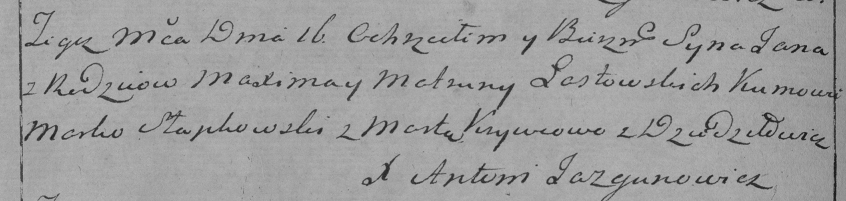 Tegoż Mća Dnia 16. Ochrzciłem y Birzm. Syna Jana
z Rodziców Maxima y Matruny Lastowskich Kumowie
Marko Słapkowski z Martą Krywcowo z Dzie
X Antoni Jazgunowicz